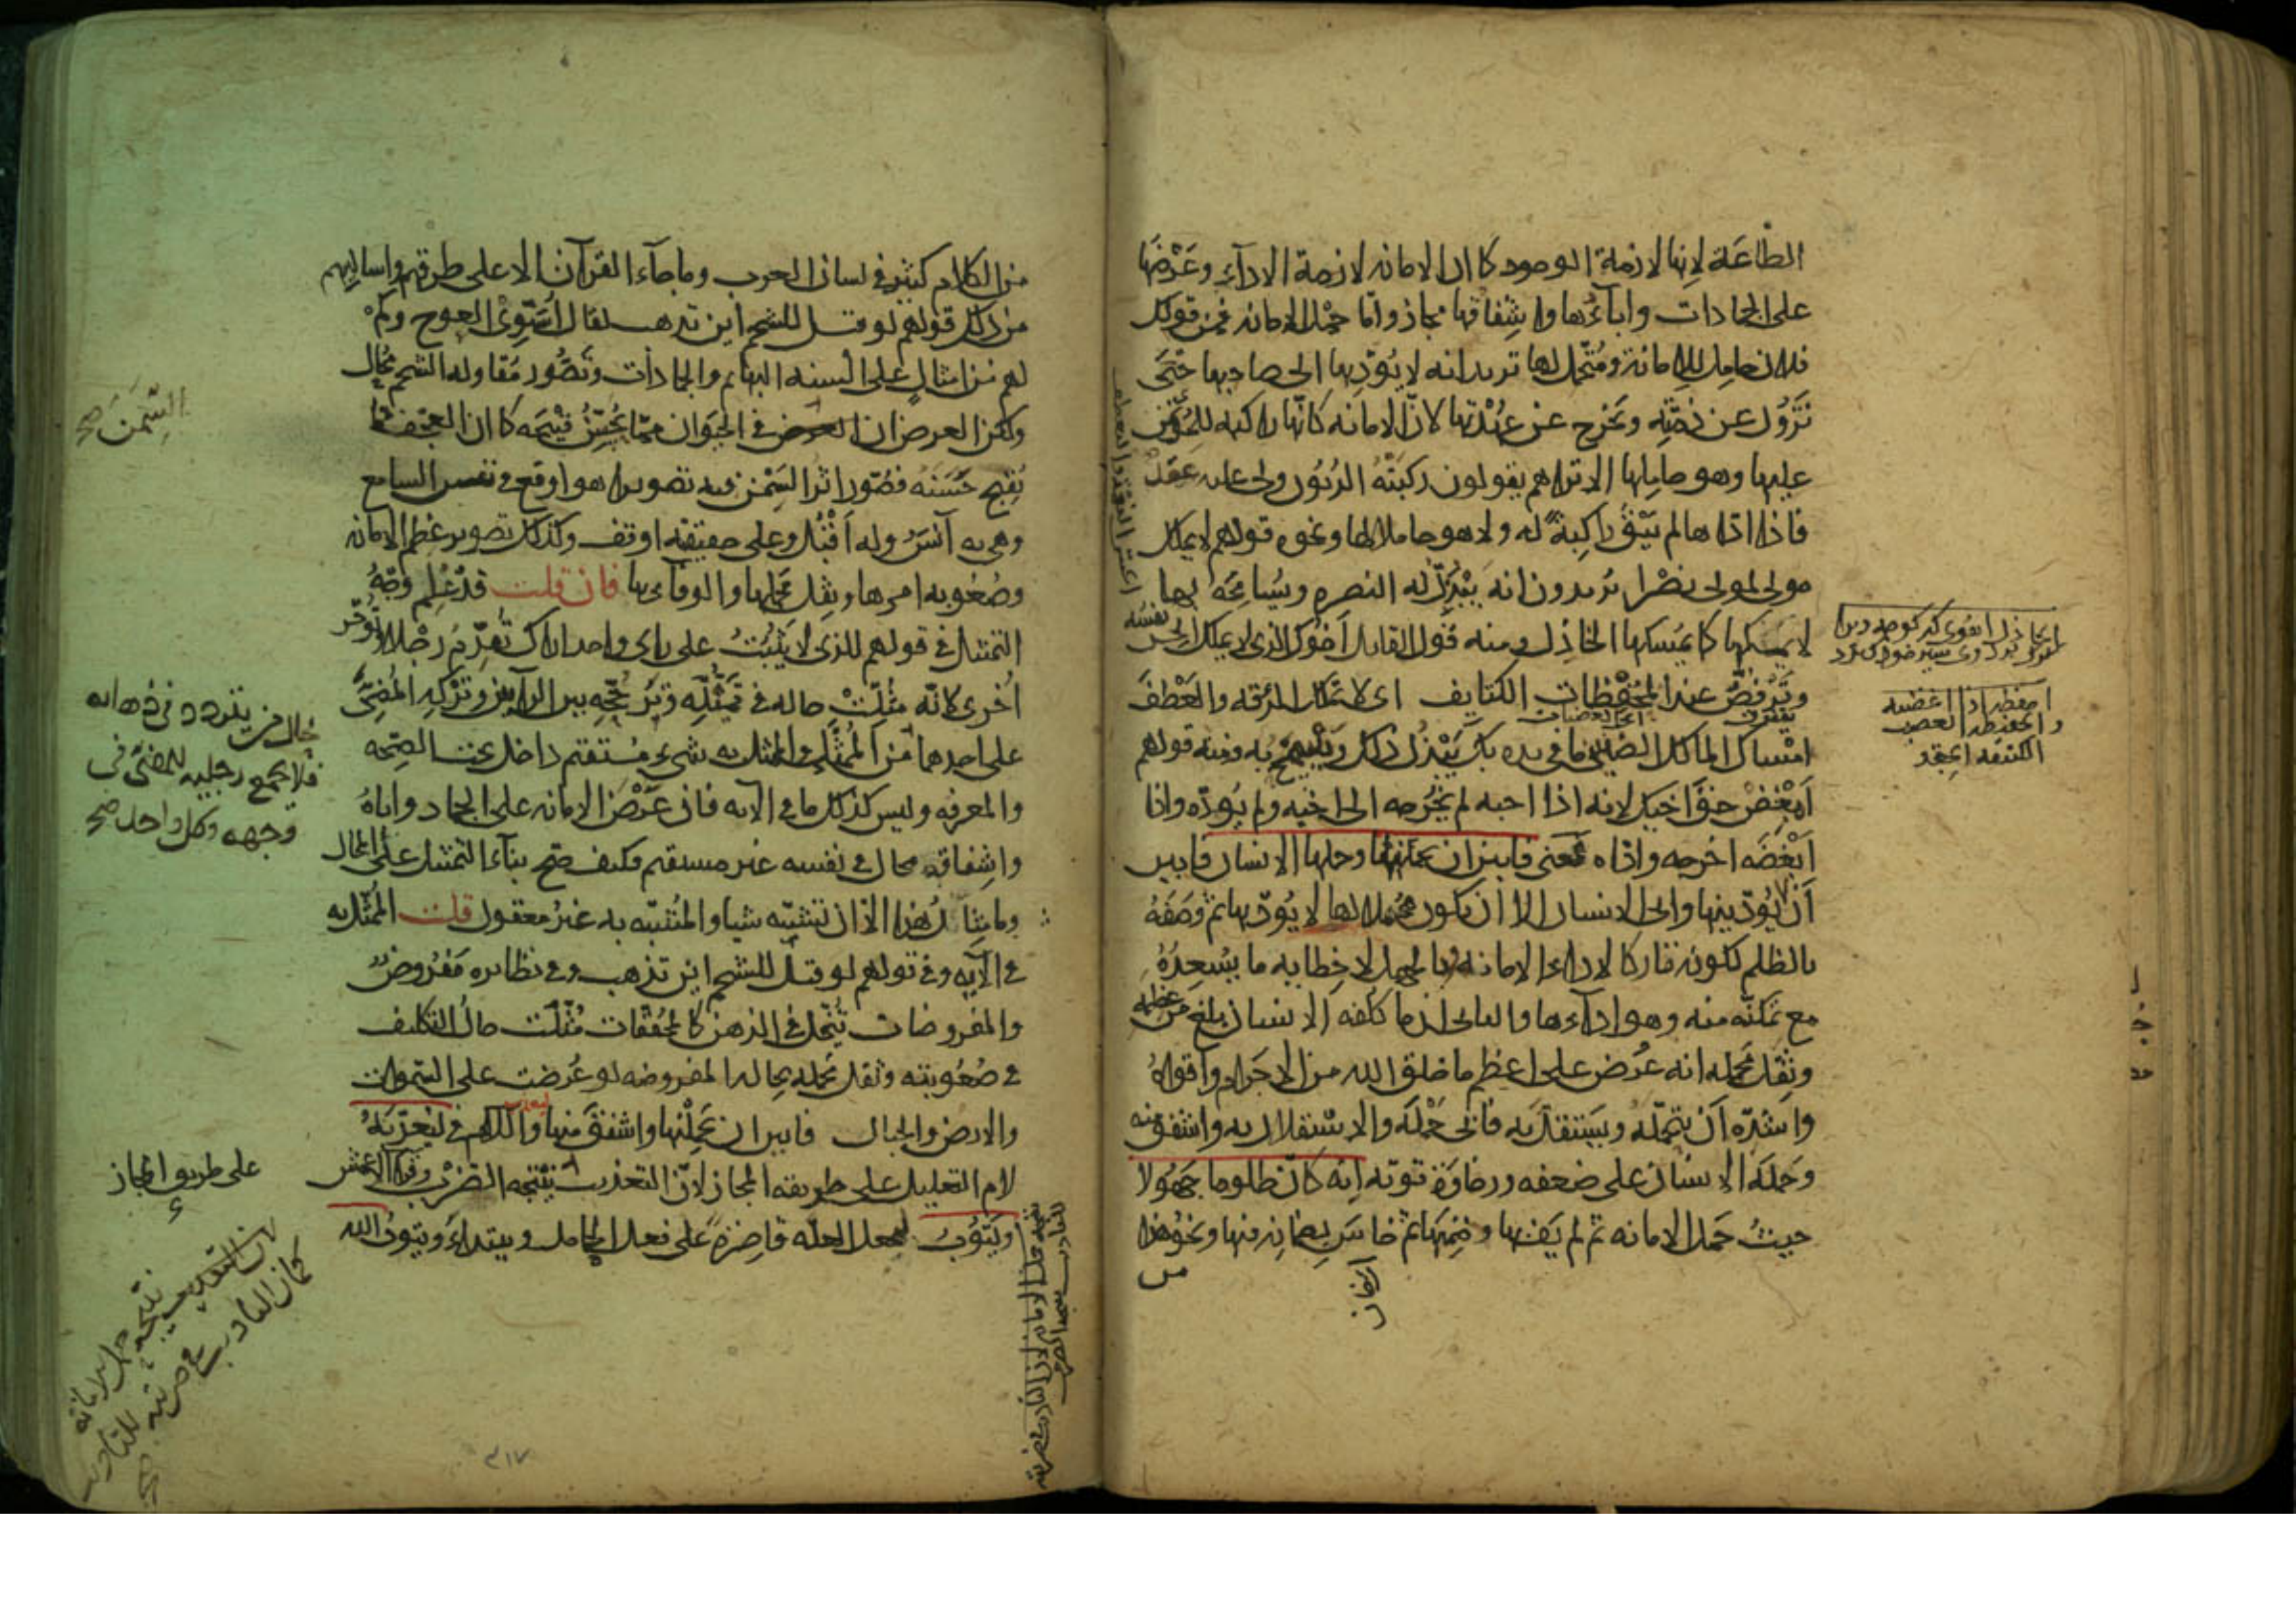 الطاعة لانها لازمة الوجود كما ان الامانه لازمة الاداء وعرضها
على الجمادات واباءها واشفاقها مجاز واما حمل الامانه فمن قولك
فلان حامل للامانة ومحتمل لها تريد انه لا يؤديها الى صاحبها حتى
تزول عن ذمته ويخرج عن عهدتها لان الامانه كانها راكبه للمؤتمن
عليها وهو حاملها الا تراهم يقولون ركبته الديون ولى عليه حق
فاذا اداها لم تبق راكبة له ولا هو حاملا لها ونحوه قولهم لا يملك
مولى لمولى نصرا يريدون انه يبذل له النصره ويسامحه بها
لا يمسكها كما يمسكها الخاذل ومنه قول القايل اخوك الذى لا يملك الحس نفسه
وترفض عند المحفظات الكتايف اى لا يمسك الرقه والعطف
امساك المالك الضنين ما فى يده بل يبذل ذلك ويسمح به ومنه قولهم
ابغض حق اخيك لانه اذا احبه لم يخرجه الى اخيه ولم يؤده واذا
ابغضه اخرجه واداه فمعنى فابين ان يحملنها وحملها الانسان فابين
ان يؤدينها وابى الانسان الا ان يكون محتملا لها لا يؤديها ثم وصفه
بالظلم لكونه تاركا لاداء الامانة وبالجهل لاخطايه ما يسعده
مع تمكنه منه وهو اداءها والثانى ان ما كلفه الانسان بلغ من عظمه
وثقل محمله انه عرض على اعظم ما خلق الله من الاجرام واقواه
واشده ان يتحمله ويستقل به فابى حمله والاستقلال به واشفق منه
وحمله الانسان على ضعفه ورخاوة قوته انه كان ظلوما جهولا
حيث حمل الامانه ثم لم يف بها وضمنها ثم خاس بضمانه فيها ونحو هذا
من
حفظه اذا اغضبه
والحفيظه الغضب
الكتيفه الحقد
من الكلام كثير فى لسان العرب وما جاء القرآن الا على طرقهم واساليبهم
من ذلك قولهم لو قيل للشحم اين تذهب لقال اسوى العوج وكم
لهم من امثال على السنه البهايم والجمادات وتصور مقاوله الشحم محال
ولكن الغرض ان السمن فى الحيوان مما يحسن قبيحه كما ان العجف مما
يقبح حسنه فصور اثر السمن فيه تصويرا هو اوقع فى نفس السامع
وهى به آنس وله اقبل وعلى حقيقته اوقف وكذلك تصوير عظم الامانه
وصعوبه امرها وثقل محملها والوفاء بها فان قلت قد علم وجه
التمثيل فى قولهم للذى لا يثبت على راى واحد اراك تقدم رجلا وتؤخر
اخرى لانه مثلت حاله فى تميله وترجحه بين الرايين وتركه المضى
على احدهما من الممثل والممثل به شىء مستقيم داخل تحت الصحه
والمعرفه وليس كذلك ما فى الآيه فان عرض الامانه على الجماد واباه
واشفاقه محال فى نفسه غير مستقيم فكيف صح بناء التمثيل على المحال
وما مثال هذا الا ان تشبه شيا والمشبه به غير معقول قلت الممثل به
فى الآيه وفى قولهم لو قيل للشحم اين تذهب وفى نظايره مفروض
والمفروضات تتخيل فى الذهن كالمحققات مثلت حال التكليف
فى صعوبته وثقل محمله بحاله المفروضه لو عرضت على السموات
والارض والجبال فابين ان يحملنها واشفقن منها واللام فى ليعذب
لام التعليل على طريقه المجاز لان التعذيب نتيجه وقرأ الاعمش
ويتوب ليجعل العله قاصرة على فعل الحامل ويبتدئ ويتوب الله
السمن صح
بحال من يتردد فى ذهابه
فلا يجمع رجليه للمضى فى
وجهه وكل واحد صح
على طريق المجاز
لان التعذيب
نتيجه حمل الامانه
كما ان التأديب فى ضربته للتأديب
صح
٣١٧